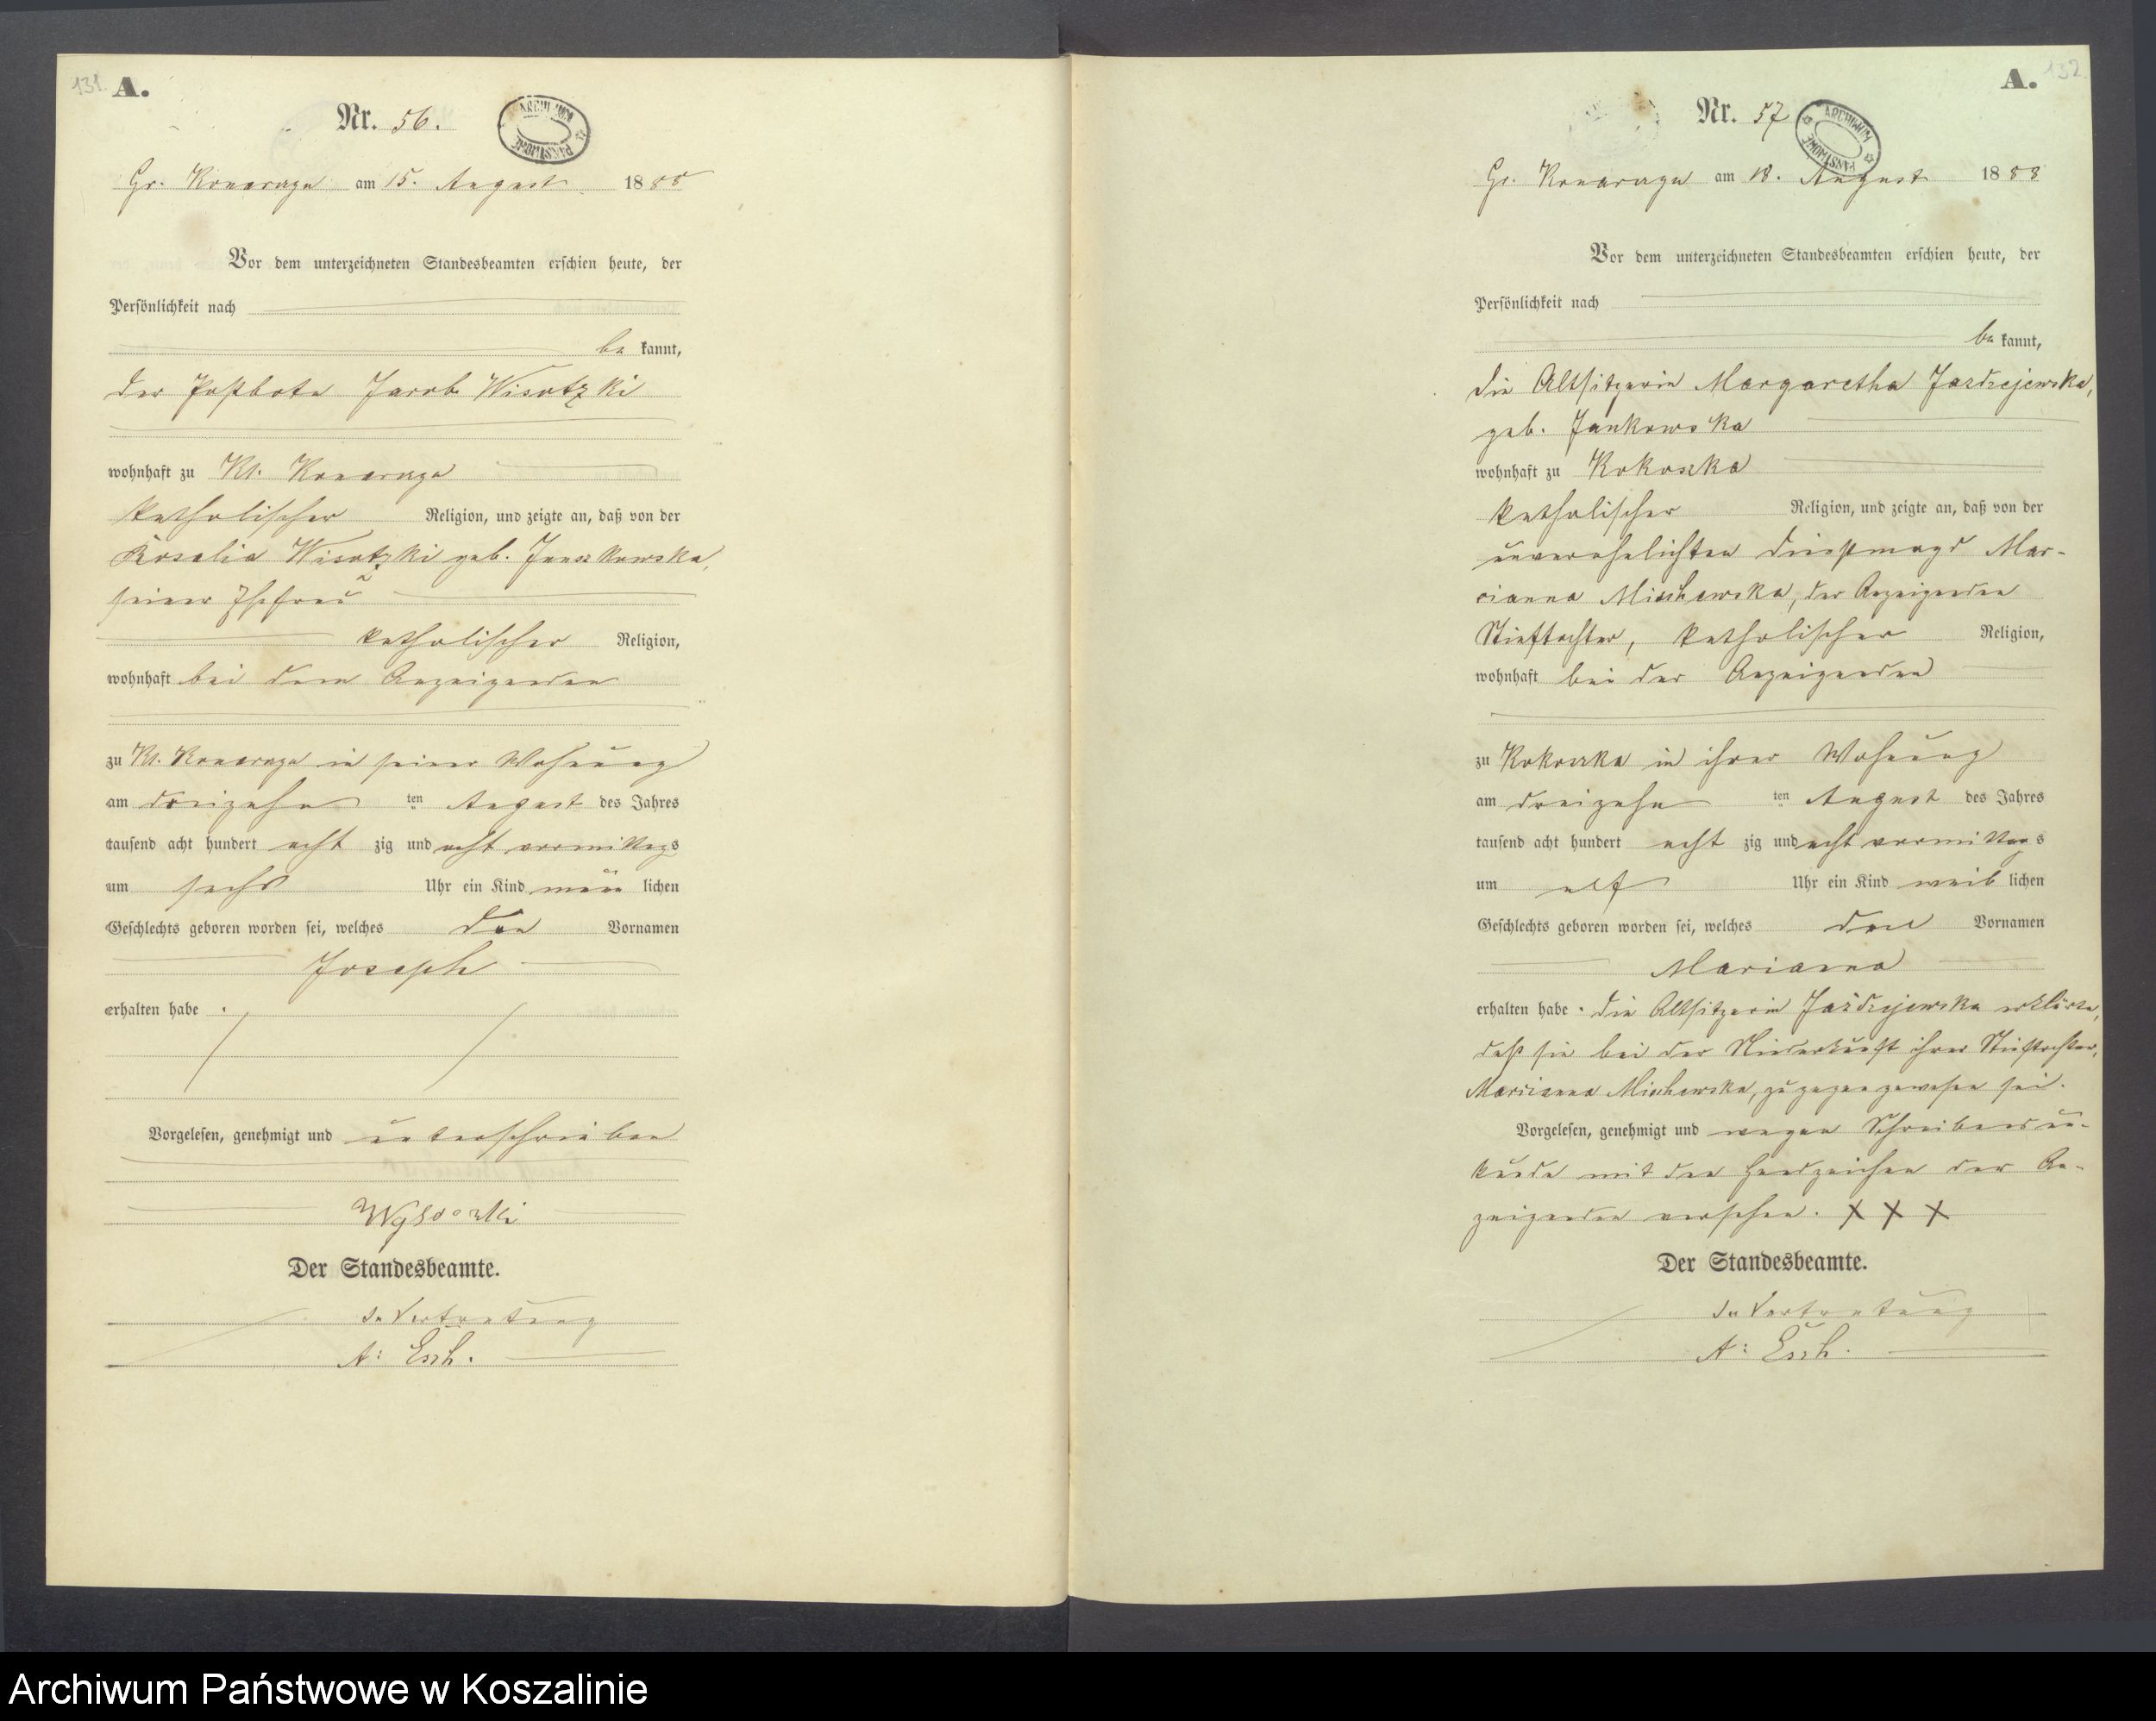 131.
A.
Nr. 56.
ARCHIWUM PAŃSTWOWE
Gr. Konarczyn am 15. August 1888
Vor dem unterzeichneten Standesbeamten erschien heute, der
Persönlichkeit nach
be kannt,
der Postbote Jacob Wisotzki
wohnhaft zu Kl. Konarczyn
katholischer Religion, und zeigte an, daß von der
Rosalia Wisotzki geb. Januszkowska,
seiner Ehefrau
katholischer Religion,
wohnhaft bei dem Anzeigenden
zu Kl. Konarczyn in seiner Wohnung
am dreizehn ten August des Jahres
tausend acht hundert acht zig und acht vormittags
um sechs Uhr ein Kind männ lichen
Geschlechts geboren worden sei, welches den Vornamen
Joseph
erhalten habe .
Vorgelesen, genehmigt und unterschrieben
Wysocki
Der Standesbeamte.
In Vertretung
A: Esch.
A.
132.
Nr. 57
ARCHIWUM PAŃSTWOWE
Gr. Konarczyn am 18. August 1888
Vor dem unterzeichneten Standesbeamten erschien heute, der
Persönlichkeit nach
be kannt,
die Altsitzerin Margaretha Jazdzejewska,
geb. Jankowska
wohnhaft zu Kokoszka
katholischer Religion, und zeigte an, daß von der
unverehelichten Dienstmagd Mar-
cianna Mischewska, der Anzeigenden
Stieftochter, katholischer Religion,
wohnhaft bei der Anzeigenden
zu Kokoszka in ihrer Wohnung
am dreizehn ten August des Jahres
tausend acht hundert acht zig und acht vormittags
um elf Uhr ein Kind weib lichen
Geschlechts geboren worden sei, welches den Vornamen
Marianna
erhalten habe . die Altsitzerin Jazdzejewska erklärte,
daß sie bei der Niederkunft ihrer Stieftochter,
Marcianna Mischewska, zugegen gewesen sei.
Vorgelesen, genehmigt und wegen Schreibensun-
kunde mit den Handzeichen der An-
zeigenden versehen. X X X
Der Standesbeamte.
In Vertretung
A: Esch.
Archiwum Państwowe w Koszalinie